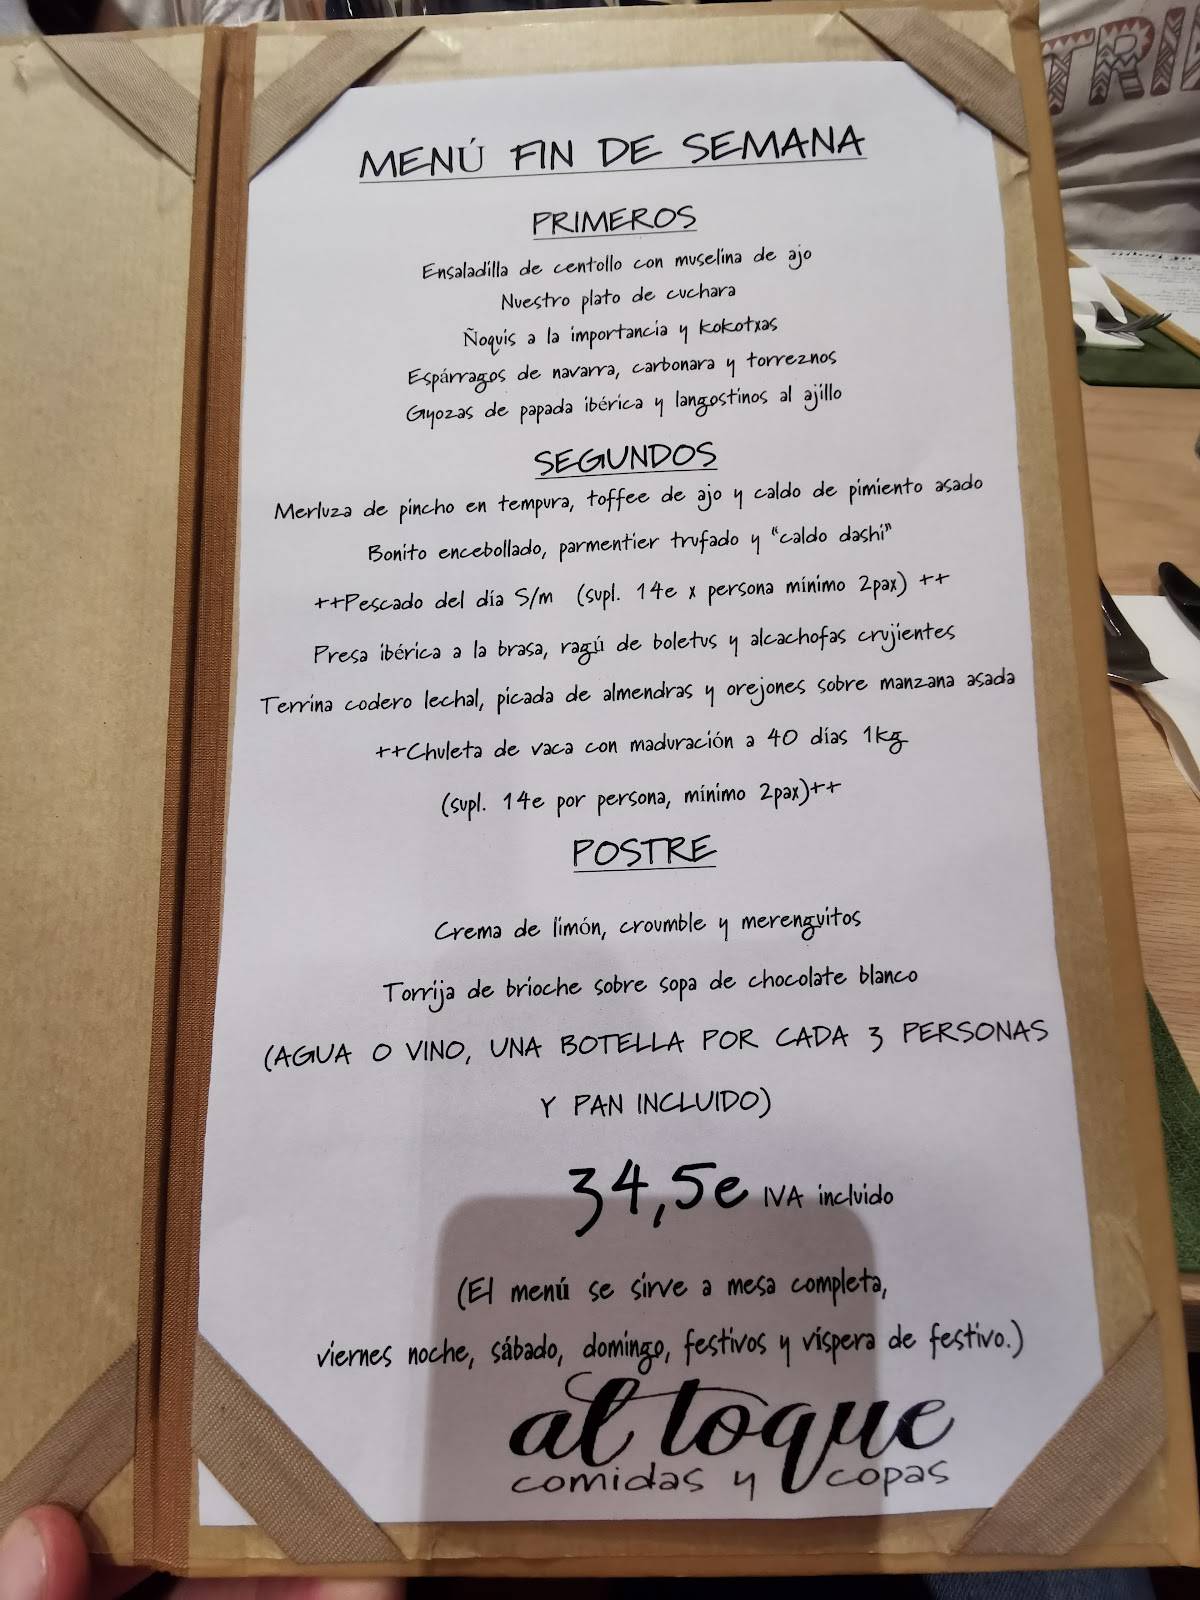 MENÚ FIN DE SEMANA
PRIMEROS
Ensaladilla de centollo con muselina de ajo
Nuestro plato de cuchara
Ñoquis a la importancia y kokotxas
Espárragos de navarra, carbonara y torreznos
Gyozas de papada ibérica y langostinos al ajillo
SEGUNDOS
Merluza de pincho en tempura, toffee de ajo y caldo de pimiento asado
Bonito encebollado, parmentier trufado y "caldo dashi"
++Pescado del día S/m (supl. 14e x persona mínimo 2pax) ++
Presa ibérica a la brasa, ragú de boletus y alcachofas crujientes
Terrina codero lechal, picada de almendras y orejones sobre manzana asada
++Chuleta de vaca con maduración a 40 días 1kg
(supl. 14e por persona, mínimo 2pax)++
POSTRE
Crema de limón, croumble y merenguitos
Torrija de brioche sobre sopa de chocolate blanco
(AGUA O VINO, UNA BOTELLA POR CADA 3 PERSONAS
Y PAN INCLUIDO)
34,5e IVA incluido
(El menú se sirve a mesa completa,
viernes noche, sábado, domingo, festivos y víspera de festivo.)
al toque
comidas y copas
TRI